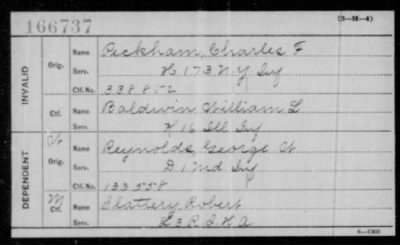 166737
(3-H-4)
INVALID
Orig.
Name Peckham, Charles F
Serv. H 173 N.Y Inf
Ctf. No. 338802
Ctf.
Name Baldwin William L
Serv. K 16 Ill Inf
DEPENDENT
W
Orig.
Name Reynolds, George W
Serv. D 1 Md Inf
Ctf. No. 133558
M
Ctf.
Name Slattery Robert
Serv. L 3 R.I.H.A